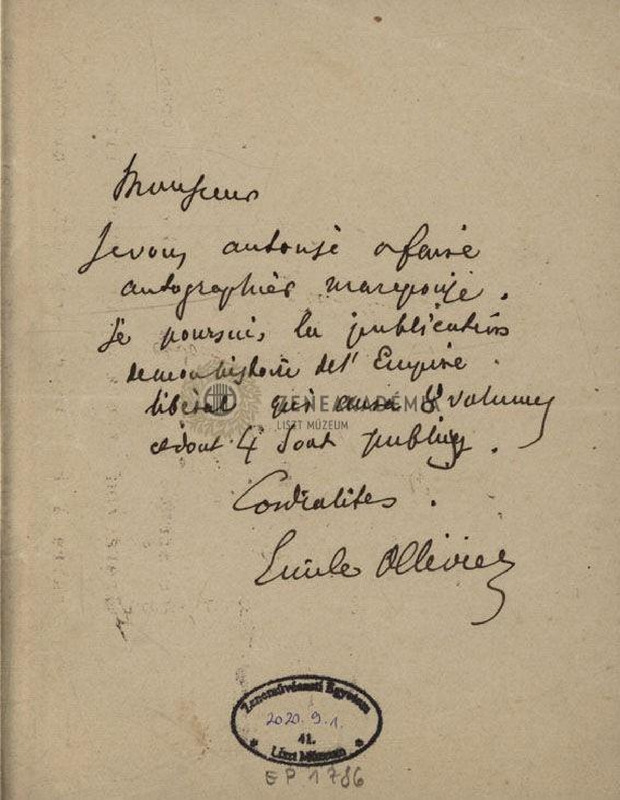 Monsieur
Je vous autorise a faire
autographier ma reponse.
Je poursuis la publication
de mon histoire de l'Empire
libéral qui aura 8 volumes
et dont 4 sont publiés.
Cordialités.
Emile Ollivier
ZENEAKADÉMIA
LISZT MÚZEUM
Zeneművészeti Egyetem
2020. 9. 1.
41.
Liszt Múzeum
EP 1786